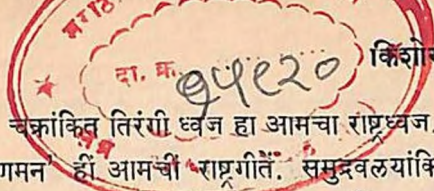 मराठी
दा. क्र. ७५९२०
किशोर
चक्रांकित तिरंगी ध्वज हा आमचा राष्ट्रध्वज.
गमन' हीं आमचीं राष्ट्रगीतें. समुद्रवलयांकि